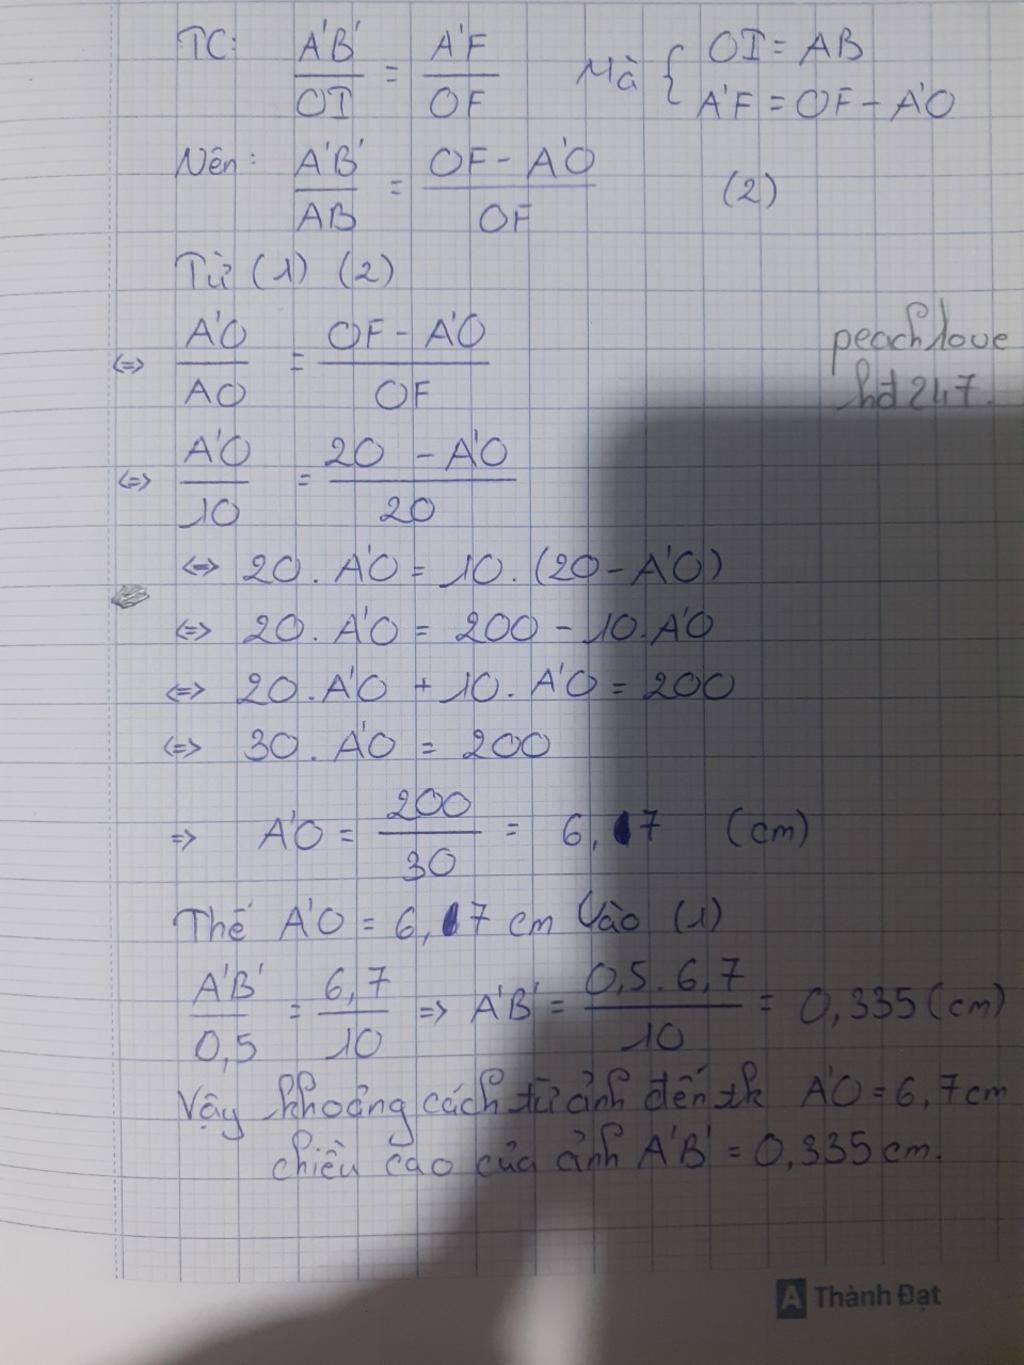 TC: A'B'/OI = A'F/OF Mà { OI = AB
A'F = OF - A'O
Nên: A'B'/AB = OF - A'O/OF (2)
Từ (1) (2)
<=> A'O/AO = OF - A'O/OF
peachlove
hđ247.
<=> A'O/10 = 20 - A'O/20
<=> 20. A'O = 10. (20 - A'O)
<=> 20. A'O = 200 - 10. A'O
<=> 20. A'O + 10. A'O = 200
<=> 30. A'O = 200
=> A'O = 200/30 = 6,7 (cm)
Thế A'O = 6,7 cm vào (1)
A'B'/0,5 = 6,7/10 => A'B' = 0,5. 6,7/10 = 0,335 (cm)
Vậy khoảng cách từ ảnh đến tk A'O = 6,7cm
chiều cao của ảnh A'B' = 0,335 cm.
A Thành Đạt